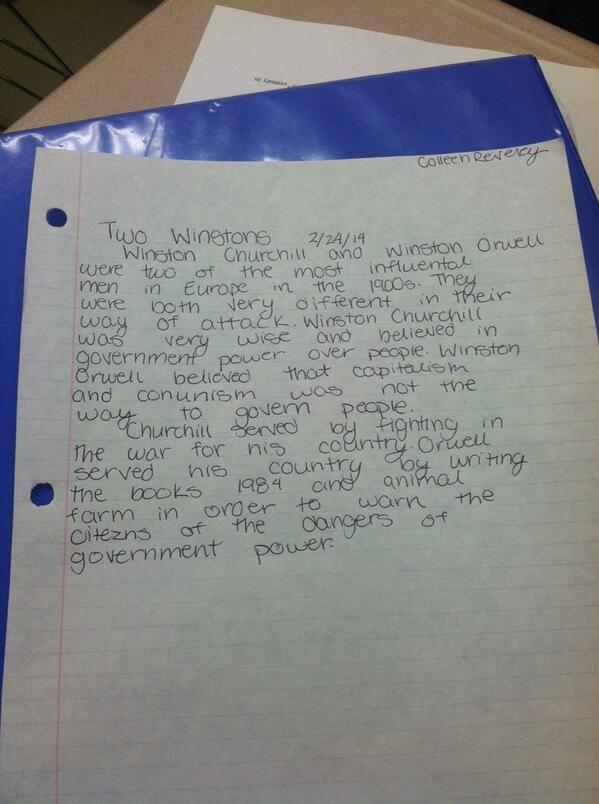 century in
Colleen Reveley
Two Winstons 2/24/14
Winston Churchill and Winston Orwell
were two of the most influental
men in Europe in the 1900s. They
were both very different in their
way of attack. Winston Churchill
was very wise and believed in
government power over people. Winston
Orwell believed that capitalism
and conunism was not the
way to govern people.
Churchill served by fighting in
the war for his country. Orwell
served his country by writing
the books 1984 and animal
farm in order to warn the
citezns of the dangers of
government power.